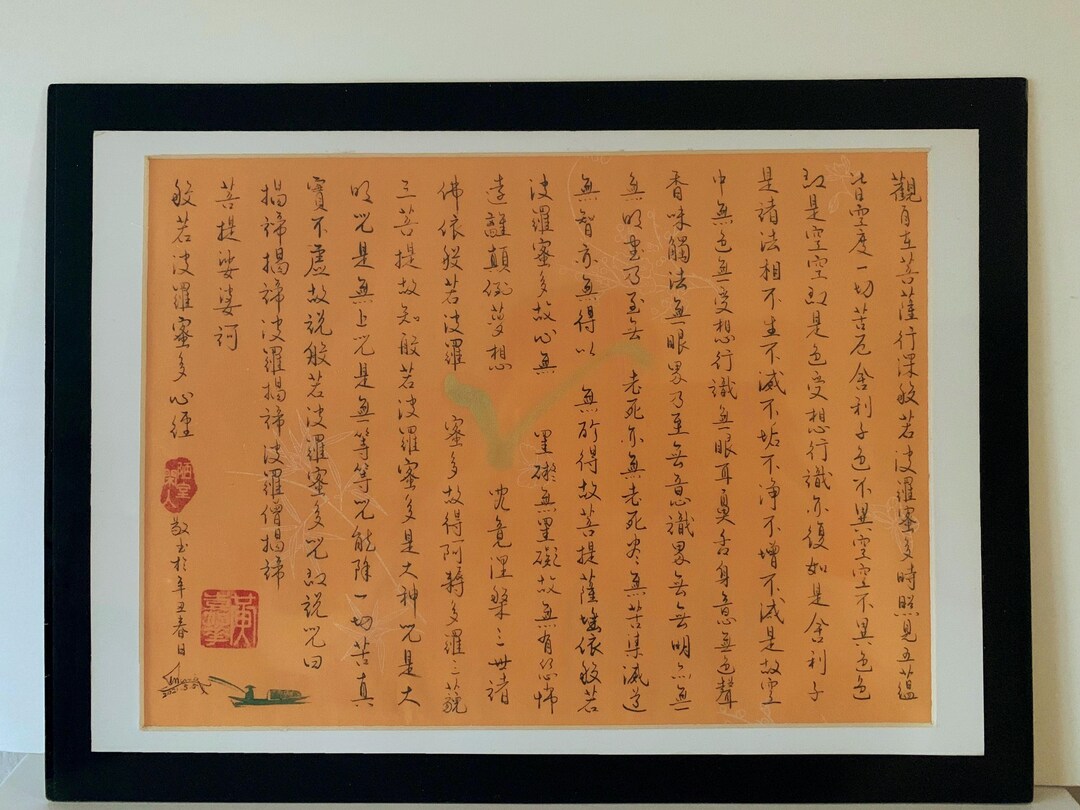 觀自在菩薩行深般若波羅蜜多時照見五蘊
皆空度一切苦厄舍利子色不異空空不異色色
即是空空即是色受想行識亦復如是舍利子
是諸法相不生不滅不垢不淨不增不減是故空
中無色無受想行識無眼耳鼻舌身意無色聲
香味觸法無眼界乃至无意識界无无明亦無
無明盡乃至无 老死亦無老死尽無苦集滅道
無智亦無得以 無所得故菩提薩埵依般若
波羅蜜多故心無 罣礙無罣礙故無有恐怖
遠離顛倒夢想 究竟涅槃三世諸
佛依般若波羅 蜜多故得阿耨多羅三藐
三菩提故知般若波羅蜜多是大神咒是大
明咒是無上咒是無等等咒能除一切苦真
實不虛故說般若波羅蜜多咒即說咒曰
揭諦揭諦波羅揭諦波羅僧揭諦
菩提娑婆訶
般若波羅蜜多心經
敬书於辛丑春日